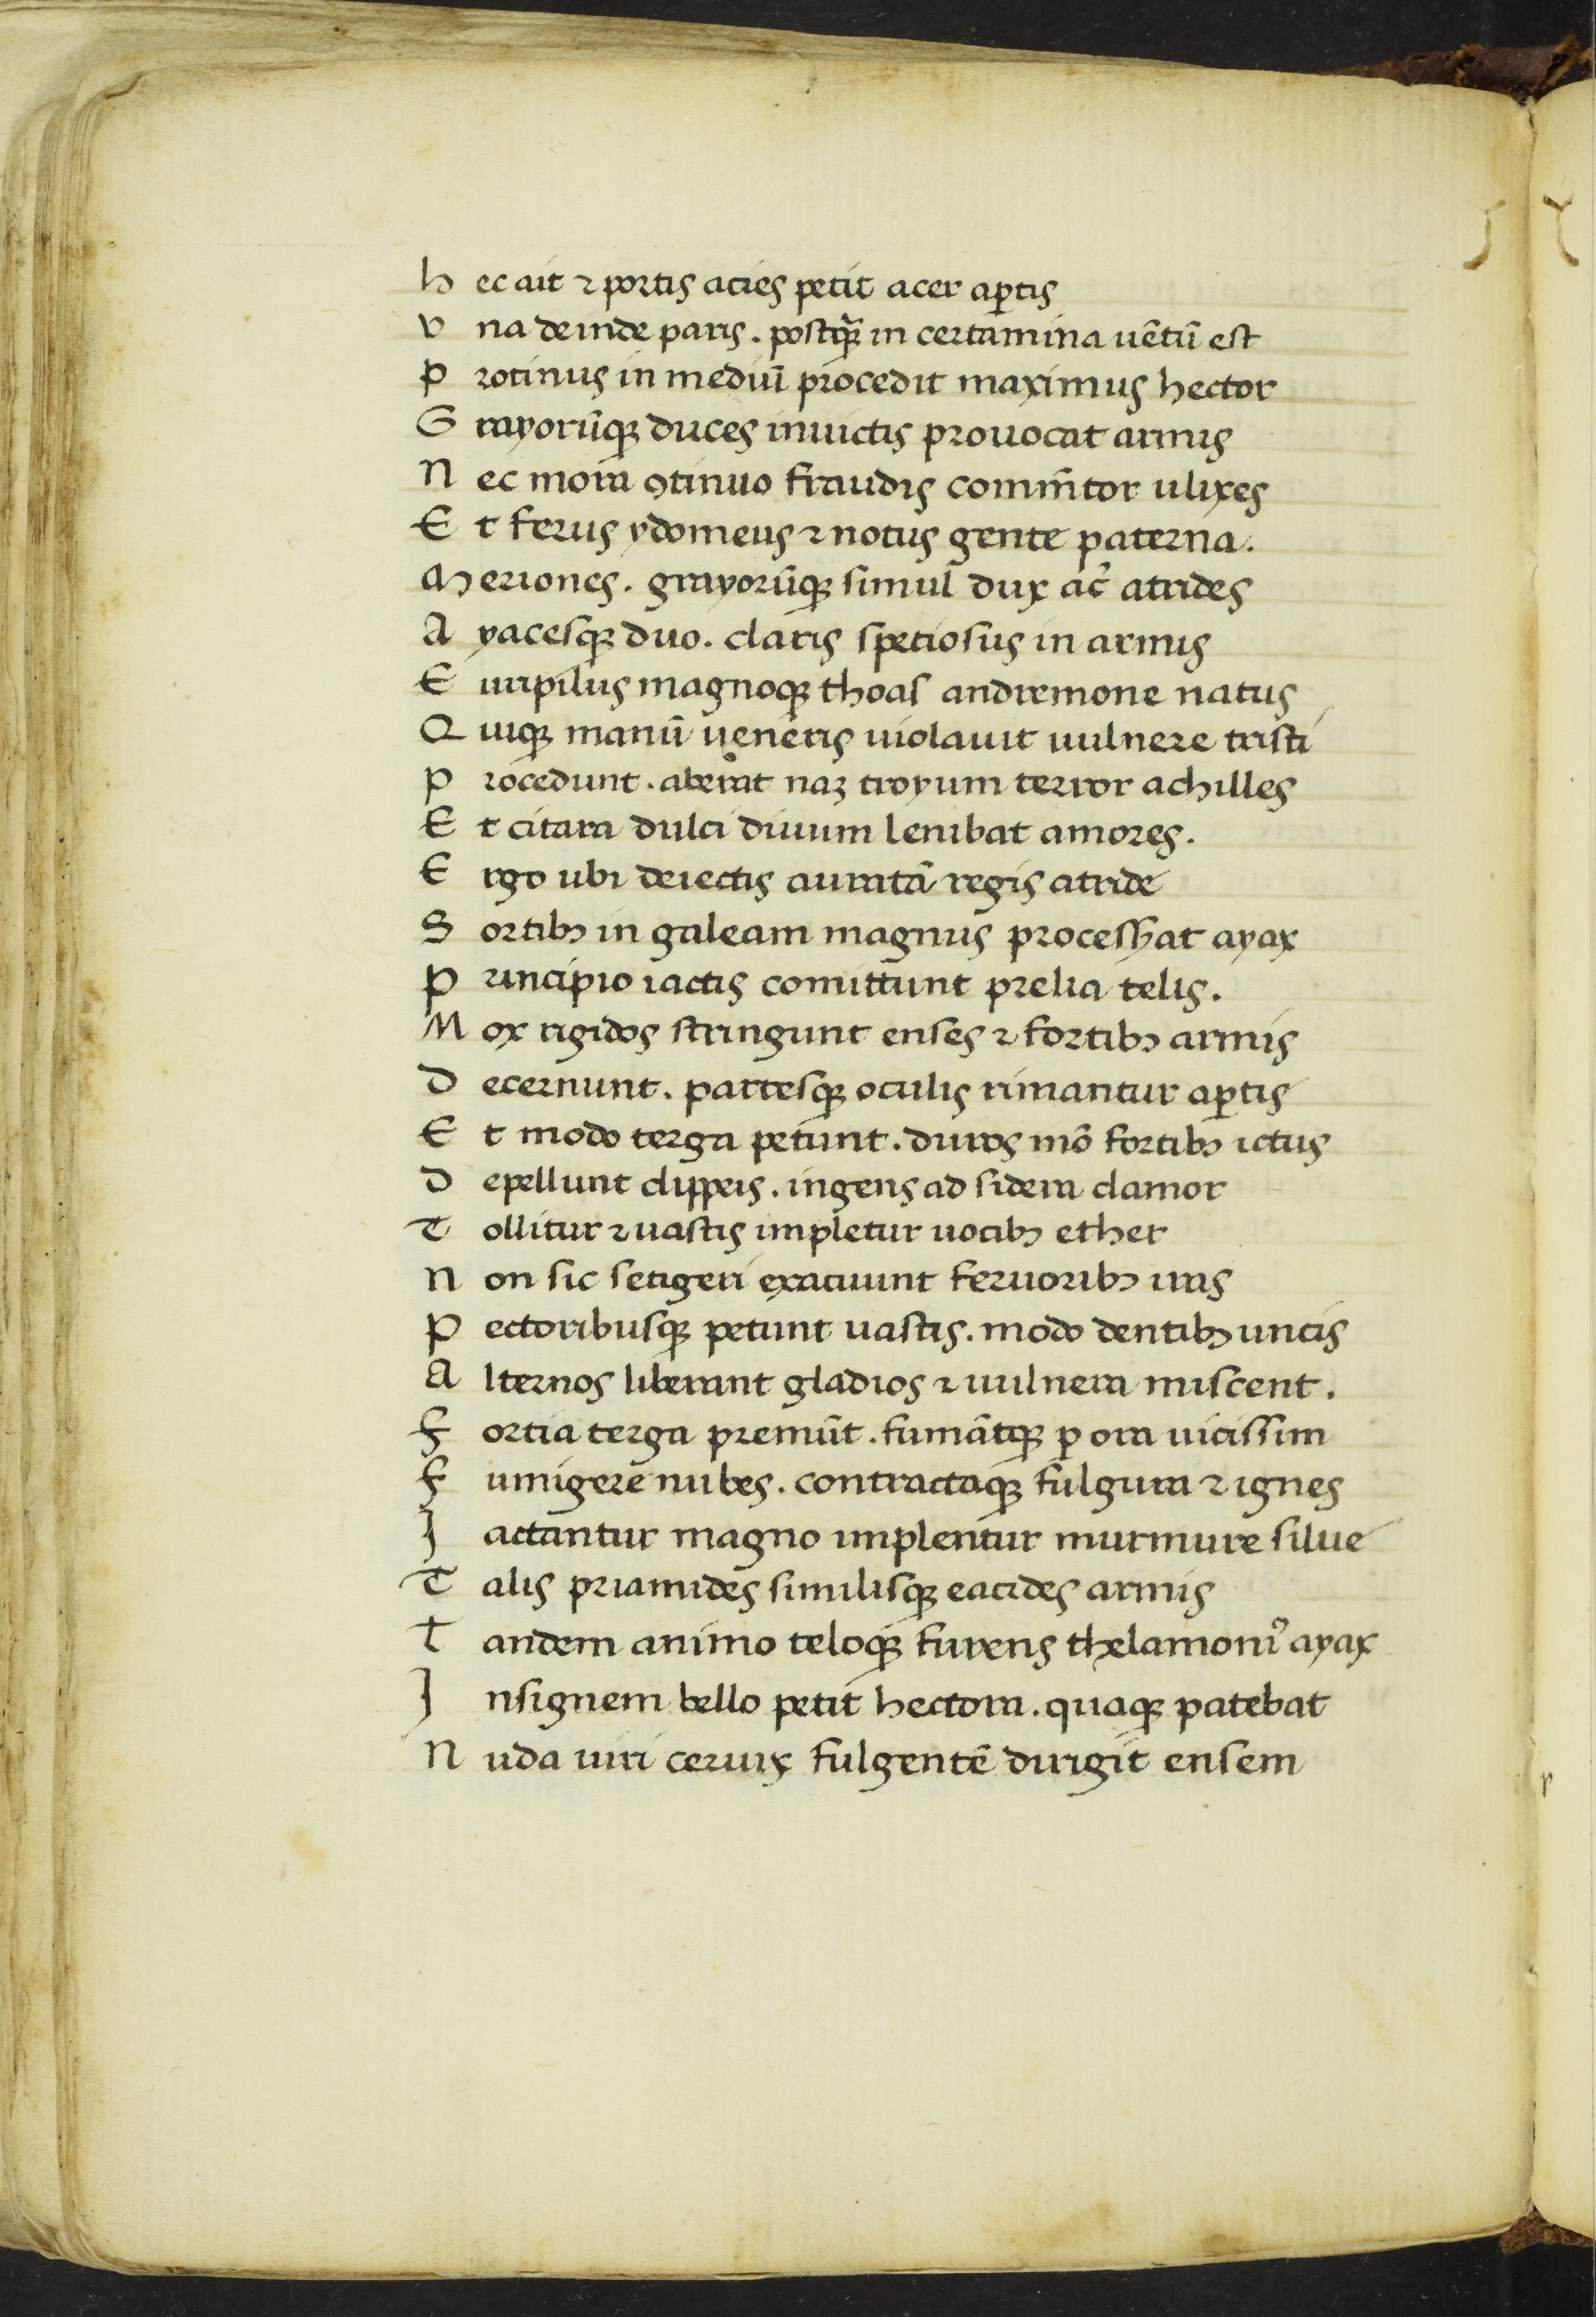 h ec ait ⁊ portis acies petit acer aꝑtis
v na deinde paris. postq̃ꝫ in certamina uẽtũ est
p rotinus in mediũ procedit maximus hector
G rayorũqꝫ duces inuictis prouocat armis
N ec mora ꝯtinuo fraudis comm̃tor ulixes
E t ferus ydomeus ⁊ notus gente paterna.
M eriones. grayorũqꝫ simul dux ac̃ atrides
A yacesqꝫ duo. claris spetiosus in armis
E uripilus magnoqꝫ thoas andremone natus
Q uiqꝫ manũ ueneris uiolauit uulnere tristi
p rocedunt. aberat naꝫ troyum terror achilles
E t citara dulci diuum lenibat amores.
E rgo ubi deiectis auratã regis atride
S ortibꝫ in galeam magnus processhat ayax
p rincipio iactis comittunt prelia telis.
M ox rigidos stringunt enses ⁊ fortibꝫ armis
D ecernunt. partesqꝫ oculis rimantur aꝑtis
E t modo terga petunt. duros mõ fortibꝫ ictus
D epellunt clippeis. ingens ad sidera clamor
T ollitur ⁊ uastis impletur uocibꝫ ether
N on sic setigeri exacuunt feruoribꝫ iras
P ectoribusqꝫ petunt uastis. modo dentibꝫ uncis
A lternos liberant gladios ⁊ uulnera miscent.
F ortia terga premũt. fumãtqꝫ ꝑ ora uicissim
F umigere nubes. contractaqꝫ fulgura ⁊ ignes
I actantur magno implentur murmure silue
T alis priamides similisqꝫ eacides armis
t andem animo teloqꝫ furens thelamoniꝰ ayax
I nsignem bello petit hectora. quaqꝫ patebat
N uda uiri ceruix fulgentẽ dirigit ensem